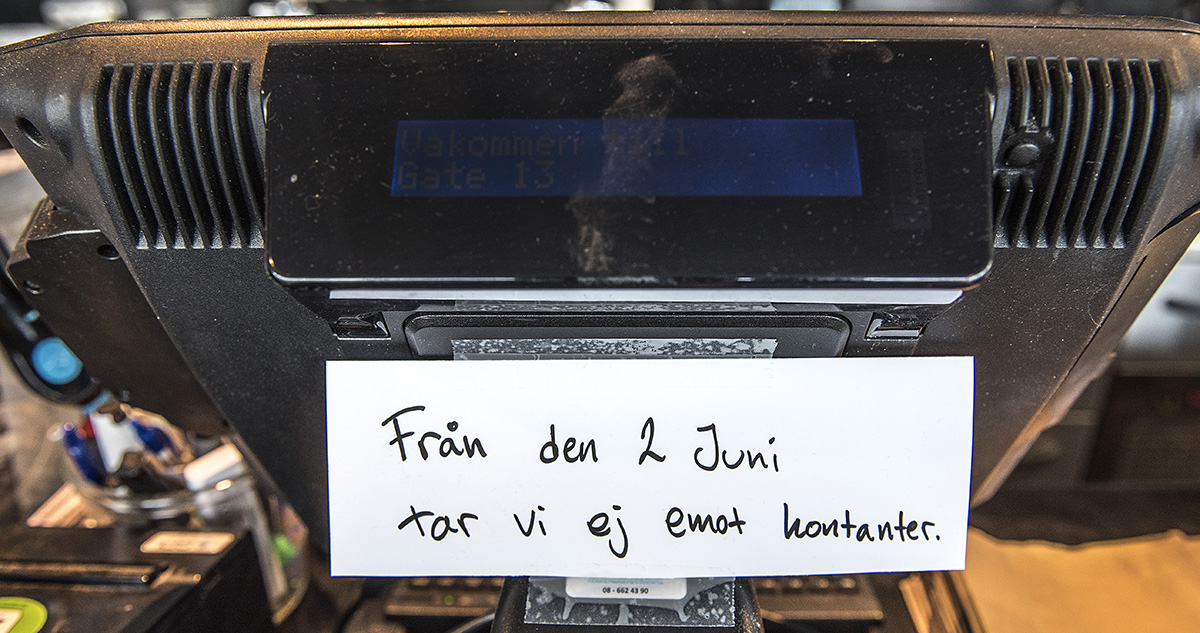 Vakommen till
Gate 13
Från den 2 Juni
tar vi ej emot kontanter.
08 - 662 43 90